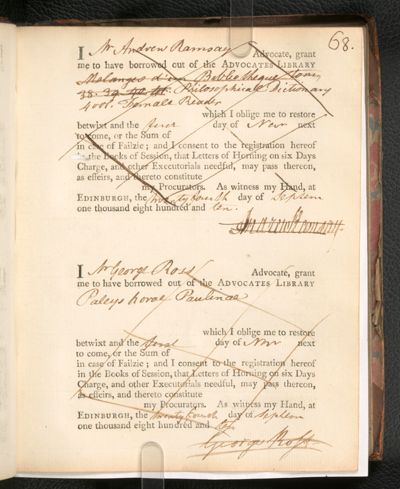 68.
I Mr Andrew Ramsay Advocate, grant
me to have borrowed out of the ADVOCATES LIBRARY
Melanges d'une Bibliotheque tom,
38. 39. Philosophical Dictionary
4 vols. Female Reader
which I oblige me to restore
betwixt and the day of Novr next
to come, or the Sum of
in case of Failzie; and I consent to the registration hereof
in the Books of Session, that Letters of Horning on six Days
Charge, and other Executorials needful, may pass thereon,
as effeirs, and thereto constitute
my Procurators. As witness my Hand, at
EDINBURGH, the twenty fourth day of Septem
one thousand eight hundred and ten.
I Mr George Ross Advocate, grant
me to have borrowed out of the ADVOCATES LIBRARY
Paleys horae Paulinae
which I oblige me to restore
betwixt and the day of Novr next
to come, or the Sum of
in case of Failzie; and I consent to the registration hereof
in the Books of Session, that Letters of Horning on six Days
Charge, and other Executorials needful, may pass thereon,
as effeirs, and thereto constitute
my Procurators. As witness my Hand, at
EDINBURGH, the twenty fourth day of Septem
one thousand eight hundred and ten
George Ross